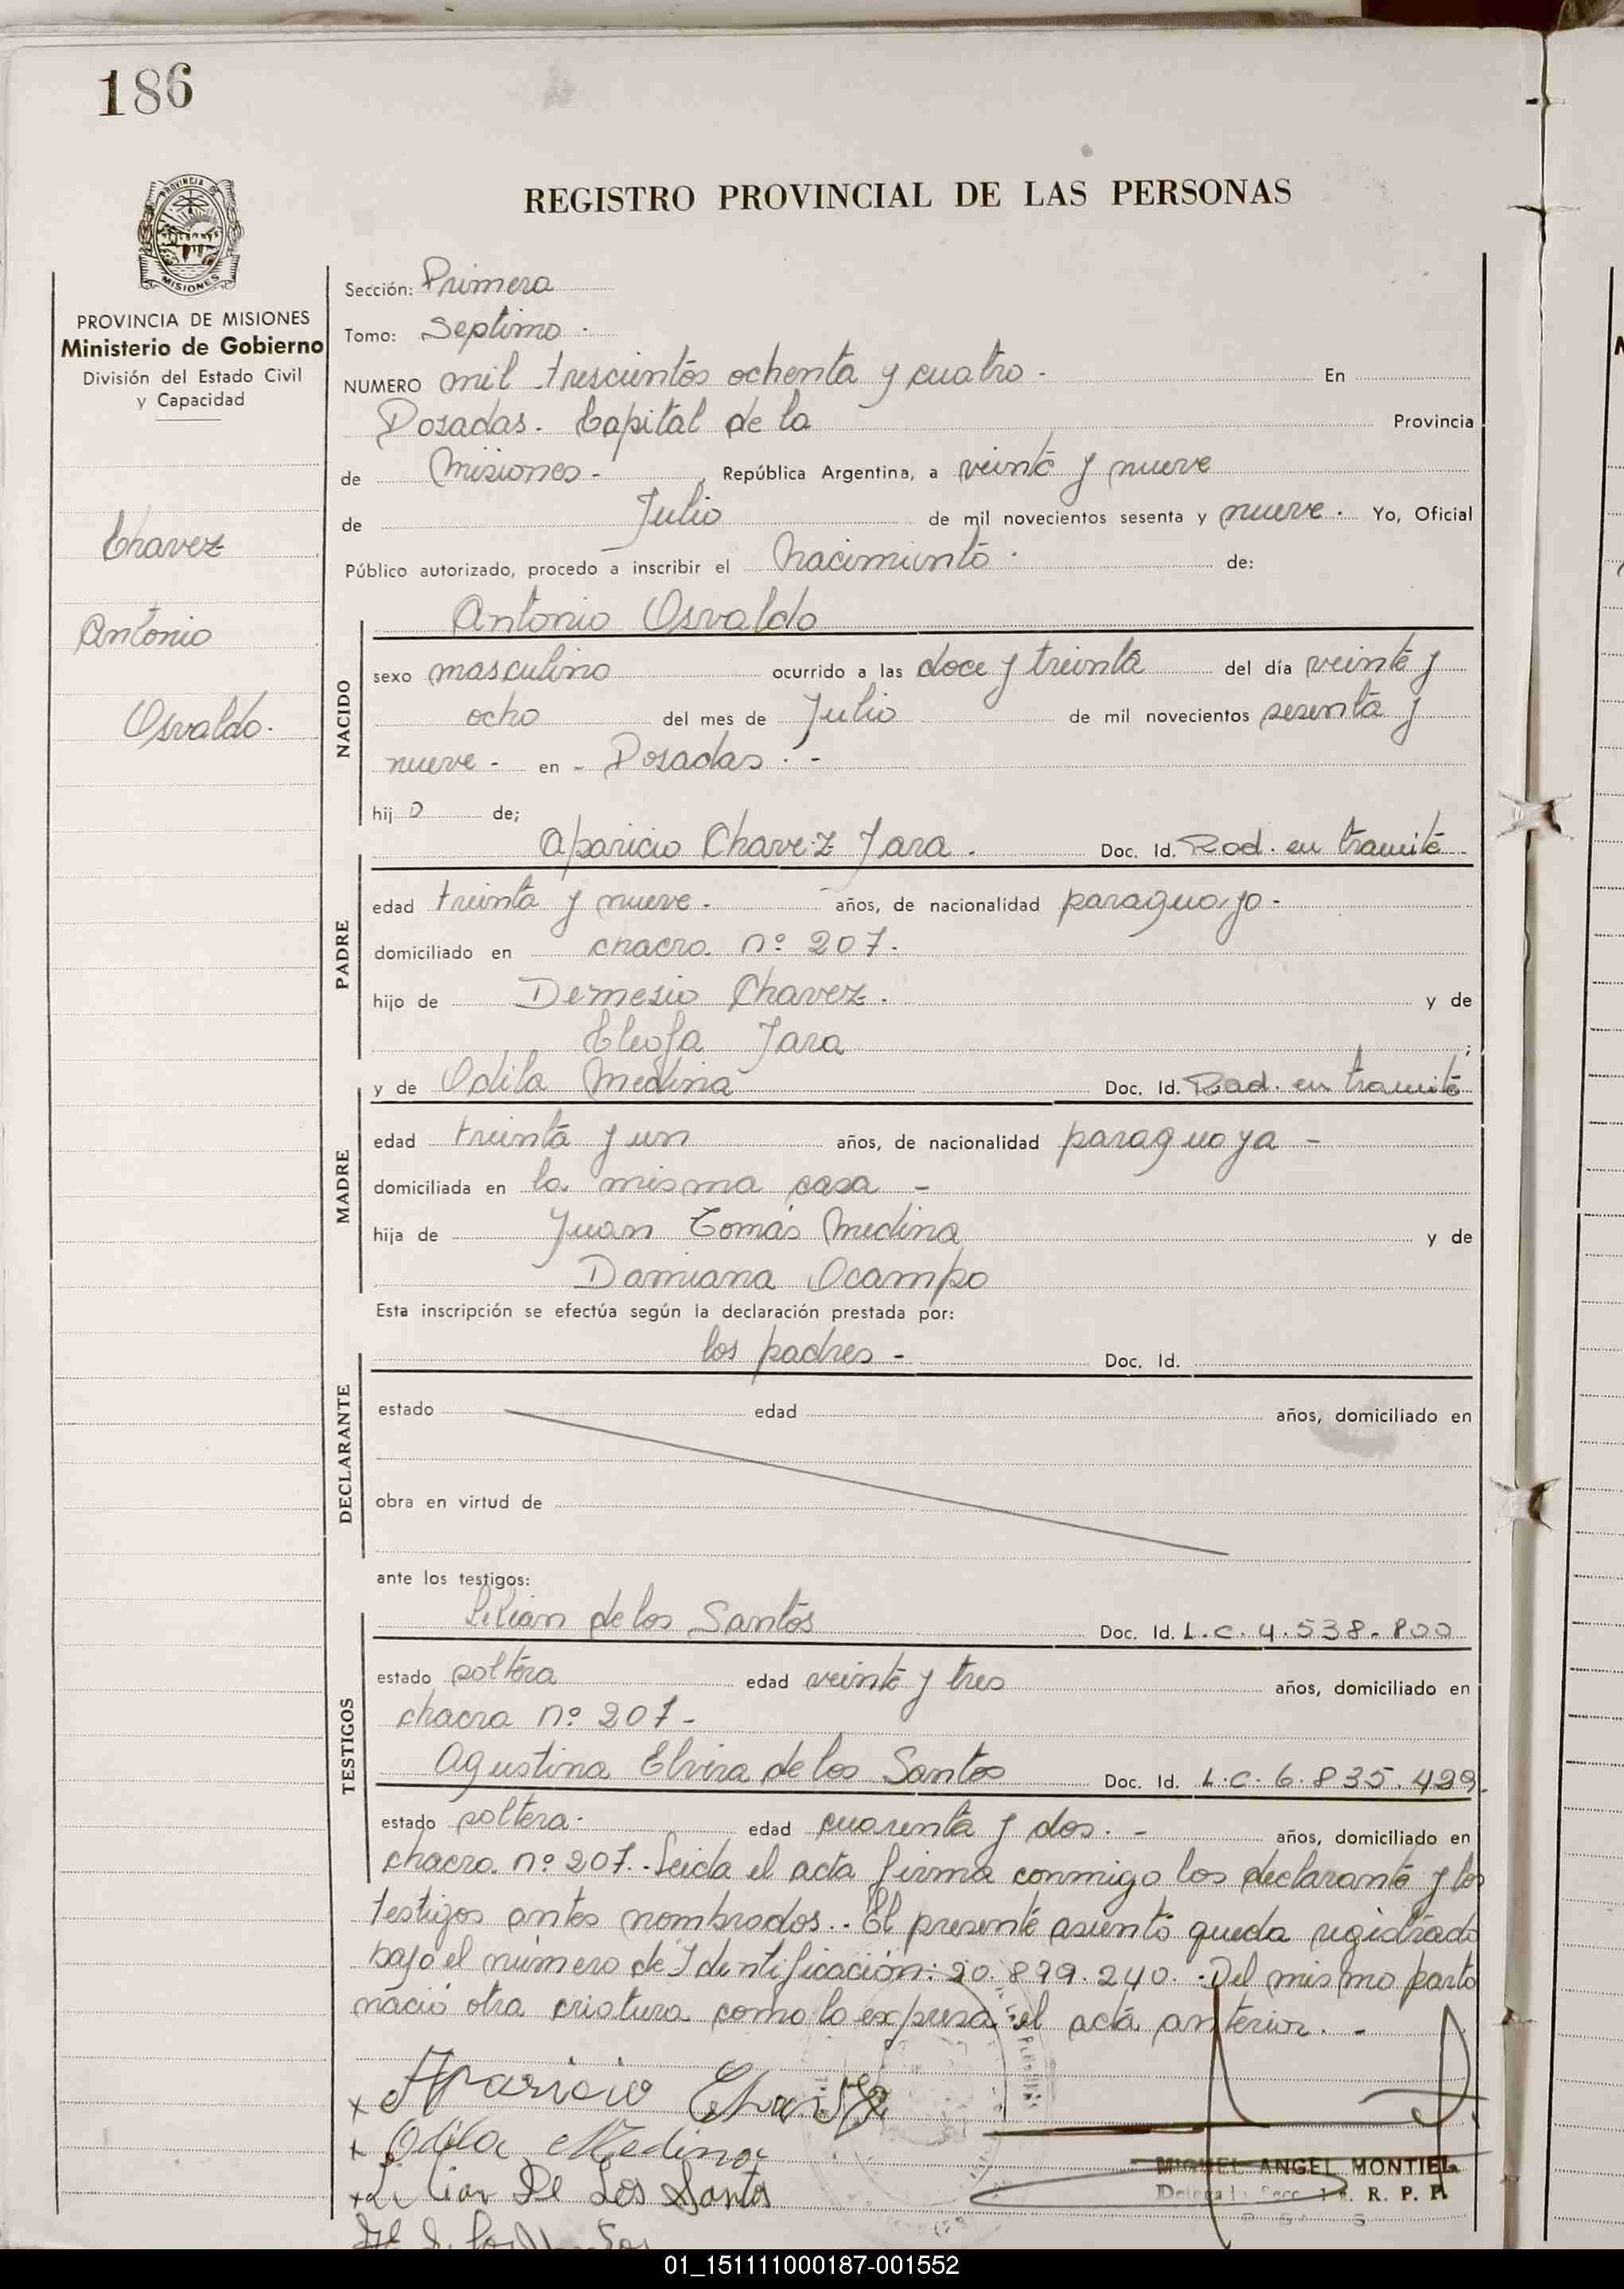 186
PROVINCIA DE
MISIONES
PROVINCIA DE MISIONES
Ministerio de Gobierno
División del Estado Civil
y Capacidad
Chavez
Antonio
Osvaldo.
REGISTRO PROVINCIAL DE LAS PERSONAS
Sección: Primera
Tomo: Septimo.
NUMERO mil trescientos ochenta y cuatro - En
Posadas. Capital de la Provincia
de Misiones- República Argentina, a veinte y nueve
de Julio de mil novecientos sesenta y nueve. Yo, Oficial
Público autorizado, procedo a inscribir el Nacimiento. de:
Antonio Osvaldo
NACIDO
sexo masculino ocurrido a las doce y treinta del día veinte y
ocho del mes de Julio de mil novecientos sesenta y
nueve - en - Posadas. -
hijo de;
Aparicio Chavez Jara. Doc. Id. Rad. en tramite
PADRE
edad treinta y nueve. años, de nacionalidad paraguayo -
domiciliado en chacra nº 207.
hijo de Demesio Chavez. y de
Cleofa Jara ;
y de Odila Medina Doc. Id. Rad. en tramite
MADRE
edad treinta y un años, de nacionalidad paraguaya -
domiciliada en la misma casa -
hija de Juan Tomás Medina y de
Damiana Ocampo
Esta inscripción se efectúa según la declaración prestada por:
los padres - Doc. Id.
DECLARANTE
estado edad años, domiciliado en
obra en virtud de
ante los testigos:
Lilian de los Santos Doc. Id. L.C. 4.538.800
TESTIGOS
estado soltera edad veinte y tres años, domiciliado en
chacra nº 207-
Agustina Elvira de los Santos Doc. Id. L.C. 6.835.499.
estado soltera. edad cuarenta y dos. - años, domiciliado en
chacra nº 207.-Leida el acta firma conmigo los declarante y los
testigos antes nombrados.. El presente asunto queda registrado
bajo el número de Identificación: 20.899.240.-Del mismo parto
nació otra criatura como lo expresa el acta anterior. -
x Aparicio Chavez
x Odila Medina
x Lilian De Los Santos
MIGUEL ANGEL MONTIEL
R. P. P.
01_151111000187-001552